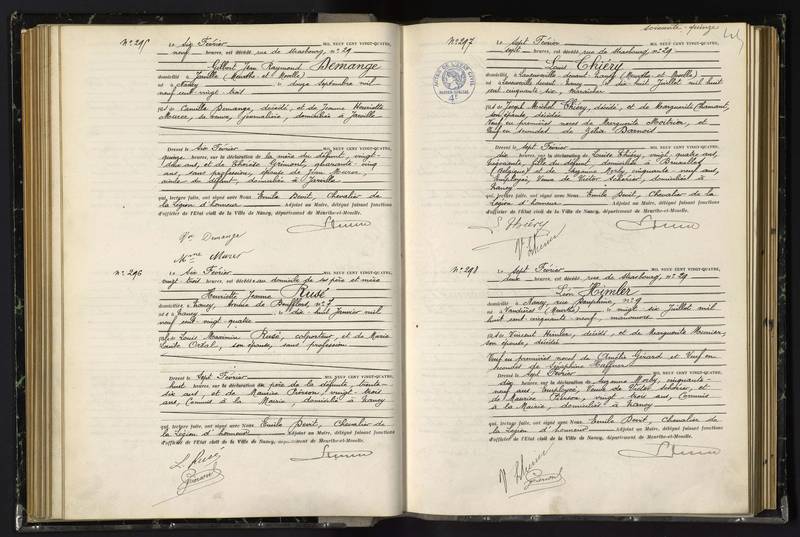 N° 295
Le six Février MIL NEUF CENT VINGT-QUATRE,
neuf heures, est décédé rue de Strasbourg, n° 29
Gilbert Jean Raymond Demange
domicilié à Jarville (Meurthe-et-Moselle)
né à Nancy le douze Septembre mil
neuf cent vingt trois
fils de Camille Demange, décédé, et de Jeanne Henriette
sa veuve, Journalière, domiciliée à Jarville
Dressé le six Février MIL NEUF CENT VINGT-QUATRE,
quinze heures, sur la déclaration de la mère du défunt, vingt-
deux ans, et de Grimont, quarante-cinq
ans, sans profession, épouse de Jean
du défunt, domiciliées à Jarville
qui, lecture faite, ont signé avec Nous Emile Devit, Chevalier de
la Légion d'honneur Adjoint au Maire, délégué faisant fonctions
d'officier de l'Etat civil de la Ville de Nancy, département de Meurthe-et-Moselle.
Vve Demange
Mme
N° 296
Le six Février MIL NEUF CENT VINGT-QUATRE,
vingt trois heures, est décédée au domicile de ses père et mère
Henriette Jeanne Rusé
domiciliée à Nancy, n° 7
née à Nancy le dix-huit Janvier mil
neuf cent vingt quatre
fille de Louis Maximin Rusé, colporteur, et de Marie
son épouse, sans profession
Dressé le sept Février MIL NEUF CENT VINGT-QUATRE,
huit heures, sur la déclaration du père de la défunte, trente-
six ans, et de Maurice Pierson, vingt-trois
ans, Commis à la Mairie, domiciliés à Nancy
qui, lecture faite, ont signé avec Nous Emile Devit, Chevalier de
la Légion d'honneur Adjoint au Maire, délégué faisant fonctions
d'officier de l'Etat civil de la Ville de Nancy, département de Meurthe-et-Moselle.
L. Rusé
Pierson
soixante-quinze
N° 297
Le sept Février MIL NEUF CENT VINGT-QUATRE,
sept heures, est décédé rue de Strasbourg n° 29
Louis Thiéry
domicilié à Laneuveville devant Nancy (Meurthe et Moselle)
né à Laneuveville devant Nancy le dix huit Juillet mil huit
cent cinquante six,
fils de Joseph Michel Thiéry, décédé, et de Marguerite
son épouse, décédée
Veuf en premières noces de Marguerite et
Veuf en secondes de
Dressé le sept Février MIL NEUF CENT VINGT-QUATRE,
dix heures, sur la déclaration de Louise Thiéry, vingt-quatre ans,
fille du défunt, domiciliée à Bruxelles
(Belgique) et de Suzanne Morly, cinquante-neuf ans,
Employée, Veuve de Victor domiciliée à
Nancy
qui, lecture faite, ont signé avec Nous Emile Devit, Chevalier de la
Légion d'honneur Adjoint au Maire, délégué faisant fonctions
d'officier de l'Etat civil de la Ville de Nancy, département de Meurthe-et-Moselle.
L Thiéry
N° 298
Le sept Février MIL NEUF CENT VINGT-QUATRE,
heures, est décédé rue de Strasbourg, n° 29
Léon Himler
domicilié à Nancy, rue Dauphine, n° 9
né à Vandières (Meurthe) le vingt six Juillet mil
huit cent cinquante-neuf, manœuvre
fils de Vincent Himler, décédé, et de Marguerite Meunier,
son épouse, décédée
Veuf en premières noces de Gérard et Veuf en
secondes de Joséphine
Dressé le sept Février MIL NEUF CENT VINGT-QUATRE,
dix heures, sur la déclaration de Suzanne Morly, cinquante-
neuf ans, Employée, Veuve de Victor et
de Maurice Pierson, vingt trois ans, Commis
à la Mairie, domiciliés à Nancy
qui, lecture faite, ont signé avec Nous Emile Devit, Chevalier de
la Légion d'honneur Adjoint au Maire, délégué faisant fonctions
d'officier de l'Etat civil de la Ville de Nancy, département de Meurthe-et-Moselle.
Pierson